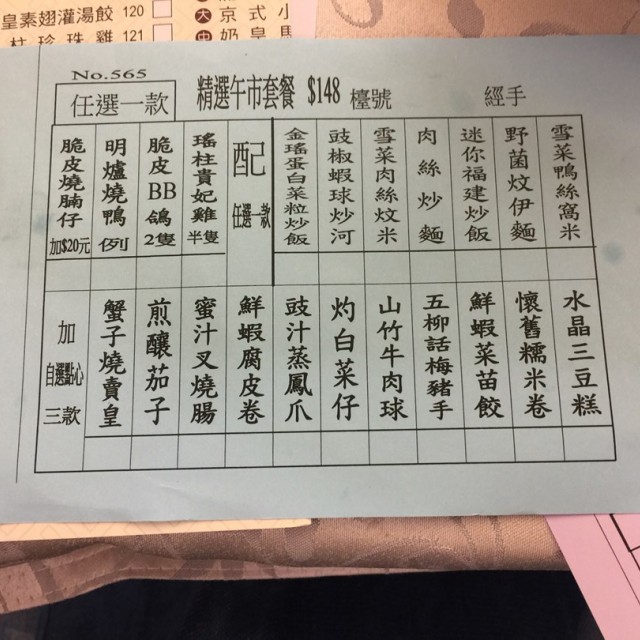 皇素翅灌湯餃 120
柱珍珠雞 121
大 京式小
中 奶皇馬
No.565
任選一款
精選午市套餐 $148 檯號
經手
脆皮燒腩仔 加$20元
明爐燒鴨 例
脆皮BB鴿 2隻
瑤柱貴妃雞 半隻
配 任選一款
金瑤蛋白菜粒炒飯
豉椒蝦球炒河
雪菜肉絲炆米
肉絲炒麵
迷你福建炒飯
野菌炆伊麵
雪菜鴨絲窩米
加 自選點心 三款
蟹子燒賣皇
煎釀茄子
蜜汁叉燒腸
鮮蝦腐皮卷
豉汁蒸鳳爪
灼白菜仔
山竹牛肉球
五柳話梅豬手
鮮蝦菜苗餃
懷舊糯米卷
水晶三豆糕